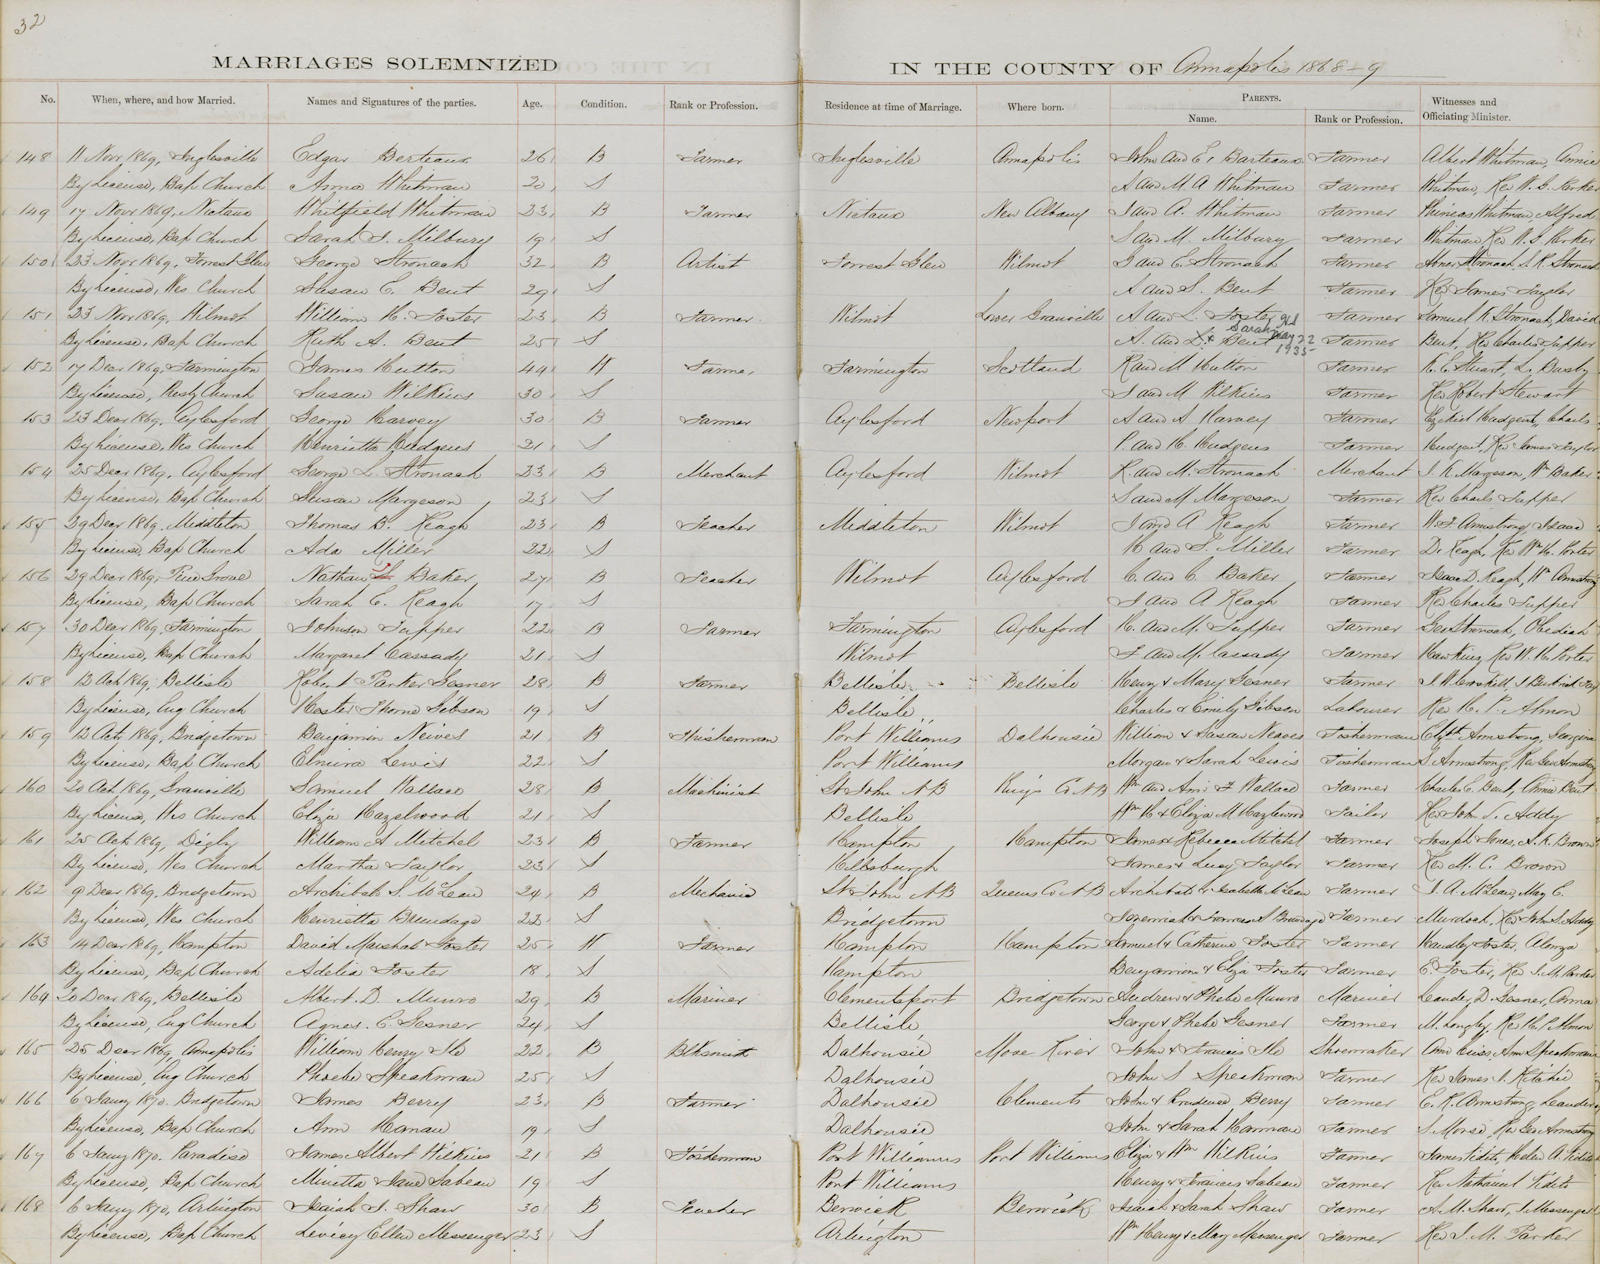 32
MARRIAGES SOLEMNIZED IN THE COUNTY OF Annapolis 1868-9
No. When, where, and how Married. Names and Signatures of the parties. Age. Condition. Rank or Profession. Residence at time of Marriage. Where born. PARENTS. Name. Rank or Profession. Witnesses and Officiating Minister.
148 11 Novr 1869, Inglesville Edgar Berteaux 26 B Farmer Inglesville Annapolis John and E, Barteaux Farmer Albert Whitman, Annie
By License, Bap Church Anna Whitman 20 S A and M A Whitman Farmer Whitman, Rev W. G. Parker
149 17 Novr 1869, Nictaux Whitfield Whitman 23 B Farmer Nictaux New Albany J and A. Whitman Farmer Phineas Whitman, Alfred
By License, Bap Church Sarah J. Milbury 19 S S and M. Milbury Farmer Whitman Rev W. G. Parker
150 23 Novr 1869, Forrest Glen George Stronach 32 B Artist Forrest Glen Wilmot G and E. Stronach Farmer Abner Stronach, S. R. Stronach
By License, Wes Church Susan C. Bent 29 S A and S. Bent Farmer Rev James Taylor
151 23 Novr 1869, Wilmot William H. Foster 23 B Farmer Wilmot Lower Granville A and L. Foster Farmer Samuel N. Stronach, David
By License, Bap Church Ruth A. Bent 25 S A. and L. Bent Sarah May 22 1935 Farmer Bent, Rev Charles Tupper
152 17 Decr 1869, Farmington James Hutton 44 W Farmer Farmington Scotland R and M Hutton Farmer R. E. Stuart, L. Busby
By License, Resby Church Susan Wilkins 30 S J and M Wilkins Farmer Rev Robert Stewart
153 23 Decr 1869, Aylesford George Harvey 30 B Farmer Aylesford Newport A and A Harvey Farmer Ezekiel Hudgens, Charls
By License, Wes Church Henrietta Hudgens 21 S P. and H. Hudgens Farmer Hudgens, Rev James Taylor
154 25 Decr 1869, Aylesford George L. Stronach 23 B Merchant Aylesford Wilmot R. and M. Stronach Merchant J. R. Margeson, Wm Baker
By License, Bap Church Susan Margeson 23 S S and M Margeson Farmer Rev Charls Tupper
155 29 Decr 1869, Middleton Thomas B. Reagh 23 B Teacher Middleton Wilmot J and A Reagh Farmer W. J. Armstrong, Isaac
By License, Bap Church Ada Miller 22 S H and S. Miller Farmer D. Reagh, Rev Wm H. Porter
156 29 Decr 1869, Pine Grove Nathan Baker 27 B Teacher Wilmot Aylesford C. and C. Baker Farmer Isaac D. Reagh, Wm Armstrong
By License, Bap Church Sarah E. Reagh 17 S J and A Reagh Farmer Rev Charles Tupper
157 30 Decr 1869, Farmington Johnson Tupper 22 B Farmer Farmington Aylesford H. and M. Tupper Farmer Geo Stronach, Obediah
By License, Bap Church Margaret Cassady 21 S Wilmot F and M. Cassady Farmer Hawkins, Rev W. H. Porter
158 12 Oct 1869, Bellisle Robert Parker Gesner 28 B Farmer Bellisle Bellisle Henry & Mary Gesner Farmer
By License, Eng Church Hester Thorne Gibson 19 S Bellisle Charles & Emily Gibson Labourer Rev H. P. Almon
159 12 Oct, 1869, Bridgetown Benjamin Neives 21 B Fhisherman Port Williams Dalhousie William & Susan Neaves Fisherman Armstrong,
By License, Bap Church Elmira Lewis 22 S Port Williams Morgan & Sarah Lewis Fisherman Armstrong, Rev Geo Armstrong
160 20 Oct 1869, Granville Samuel Wallace 28 B Machinist St John NB Kings Co NB Wm and Ann F Wallace Farmer Charles C. Bent, Annie Bent
By License, Wes Church Eliza Hazelwood 21 S Bellisle Wm H & Eliza M Hazlewood Tailor Rev John S. Addy
161 25 Oct 1869, Digby William A Mitchel 23 B Farmer Hampton Hampton James & Rebecca Mitchel Farmer Joseph Jones, S. R. Brown
By License, Wes Church Martha Taylor 23 S Hillsburgh James & Lucy Taylor Farmer Rev M. C. Brown
162 9 Decr 1869, Bridgetown Archibald S. McLean 24 B Mechanic St John NB Queens Co NB Archibald & Isabella McLean Farmer J. A. McLean, May E.
By License, Wes Church Henrietta Brundage 22 S Bridgetown Jeremiah & Frances S Brundage Farmer Murdoch, Rev John S. Addy
163 14 Decr 1869, Hampton David Marshal Foster 25 W Farmer Hampton Hampton Samuel & Catherine Foster Farmer Handley Foster, Alonzo
By License, Bap Church Adelia Foster 18 S Hampton Benjamin & Eliza Foster Farmer E. Foster, Rev J. M. Parker
164 20 Decr 1869, Bellisle Albert D. Munro 29 B Mariner Clementsport Bridgetown Andrew & Phebe Munro Mariner Leander D. Gesner, Anna
By License, Eng Church Agnes. C. Gesner 24 S Bellisle George & Phebe Gesner Farmer M. Longley, Rev H. P. Almon
165 25 Decr 1869, Annapolis William Henry Ilo 22 B Blksmith Dalhousie Mose River John & Francis Ilo Shoemaker Ann Speakman
By License, Eng Church Phoebe Speakman 25 S Dalhousie John S Speakman Farmer Rev James J. Ritchie
166 6 Jany 1870. Bridgetown James Berry 23 B Farmer Dalhousie Clements John & Prudence Berry Farmer E. R. Armstrong, Leander
By License, Bap Church Ann Hanau 19 S Dalhousie John & Sarah Hannau Farmer S. Morse, Rev Geo Armstrong
167 6 Jany 1870. Paradise James Albert Wilkins 21 B Fisherman Port Williams Port Williams Eliza & Wm Wilkins Farmer James Tidits, Helen A. Tidits
By License, Bap Church Minetta Jane Sabean 19 S Port Williams Henry & Francis Sabean Farmer Rev Nathaniel Vidito
168 6 Jany 1870, Arlington Isaiah S. Shaw 30 B Teacher Berwick Berwick Isaiah & Sarah Shaw Farmer A. M. Shaw, S. Messenger
By License, Bap Church Levicy Ellen Messenger 23 S Arlington Wm Henry & Mary Messenger Farmer Rev J. M. Parker